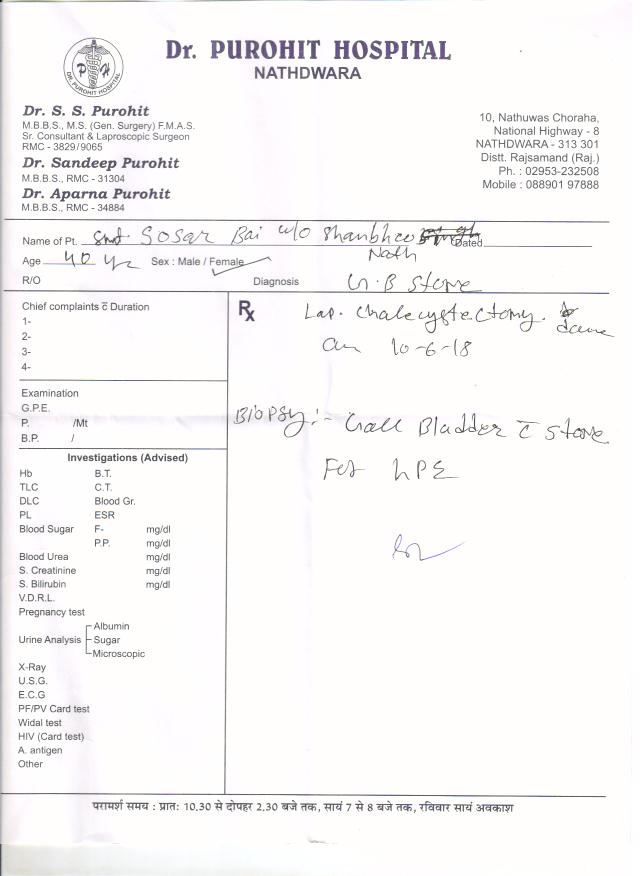 Dr. PUROHIT HOSPITAL
NATHDWARA
P H
DR. PUROHIT HOSPITAL
Dr. S. S. Purohit
M.B.B.S., M.S. (Gen. Surgery) F.M.A.S.
Sr. Consultant & Laproscopic Surgeon
RMC - 3829/9065
Dr. Sandeep Purohit
M.B.B.S., RMC - 31304
Dr. Aparna Purohit
M.B.B.S., RMC - 34884
10, Nathuwas Choraha,
National Highway - 8
NATHDWARA - 313 301
Distt. Rajsamand (Raj.)
Ph. : 02953-232508
Mobile : 088901 97888
Name of Pt. Smt Sosar Bai w/o Shanbhoo Dated
Nath
Age 40 yr Sex : Male / Female
R/O Diagnosis G.B stone
Chief complaints c̄ Duration
1-
2-
3-
4-
Examination
G.P.E.
P. /Mt
B.P. /
Investigations (Advised)
Hb B.T.
TLC C.T.
DLC Blood Gr.
PL ESR
Blood Sugar F- mg/dl
P.P. mg/dl
Blood Urea mg/dl
S. Creatinine mg/dl
S. Bilirubin mg/dl
V.D.R.L.
Pregnancy test
Albumin
Urine Analysis Sugar
Microscopic
X-Ray
U.S.G.
E.C.G
PF/PV Card test
Widal test
HIV (Card test)
A. antigen
Other
Rx Lap. Chalecystectomy. done
on 10-6-18
Biopsy:- Gall Bladder c̄ stone
For HPE
परामर्श समय : प्रातः 10.30 से दोपहर 2.30 बजे तक, सायं 7 से 8 बजे तक, रविवार सायं अवकाश